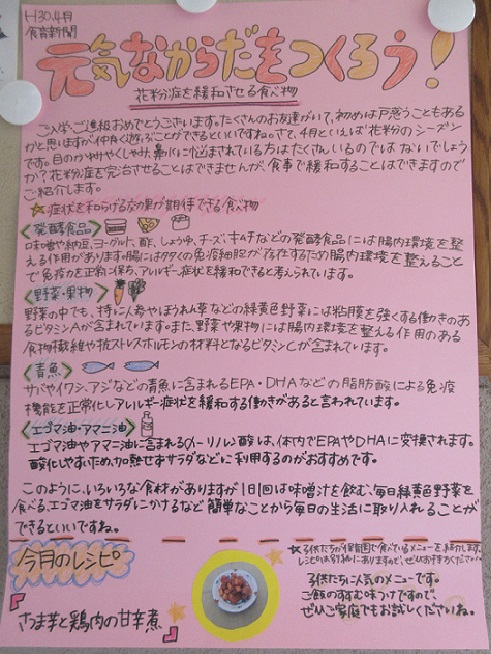 H30.4月
食育新聞
元気なからだをつくろう!
花粉症を緩和させる食べ物
ご入学、ご進級おめでとうございます。たくさんのお友達がいて、初めは戸惑うこともある
かと思いますが、仲良く遊ぶことができるといいですね。さて、4月といえば花粉のシーズン
です。目のかゆみやくしゃみ、鼻水に悩まされている方はたくさんいるのではないでしょう
か？花粉症を完治させることはできませんが、食事で緩和することはできますので
ご紹介します。
☆症状を和らげる効果が期待できる食べ物
<発酵食品>
味噌や納豆、ヨーグルト、酢、しょうゆ、チーズ、キムチなどの発酵食品には腸内環境を整
える作用があります。腸には多くの免疫細胞が存在するため腸内環境を整えること
で免疫を正常に保ち、アレルギー症状を緩和できると考えられています。
<野菜・果物>
野菜の中でも、特に人参やほうれん草などの緑黄色野菜には粘膜を強くする働きのあ
るビタミンAが含まれています。また、野菜や果物には腸内環境を整える作用のある
食物繊維や抗ストレスホルモンの材料となるビタミンCが含まれています。
<青魚>
サバやイワシ、アジなどの青魚に含まれるEPA・DHAなどの脂肪酸による免疫
機能を正常化しアレルギー症状を緩和する働きがあると言われています。
<エゴマ油・アマニ油>
エゴマ油やアマニ油に含まれるα-リノレン酸は、体内でEPAやDHAに変換されます。
酸化しやすいため、加熱せずサラダなどに利用するのがおすすめです。
このように、いろいろな食材がありますが1日1回は味噌汁を飲む、毎日緑黄色野菜を
食べる、エゴマ油をサラダにかけるなど簡単なことから毎日の生活に取り入れることが
できるといいですね。
今月のレシピ
☆子供たちが保育園で食べているメニューを紹介します。
レシピは別紙にありますので、ぜひお持ちください!
『さつま芋と鶏肉の甘辛煮』
子供たちに人気のメニューです。
ご飯のすすむ味つけですので、
ぜひご家庭でもお試しくださいね。